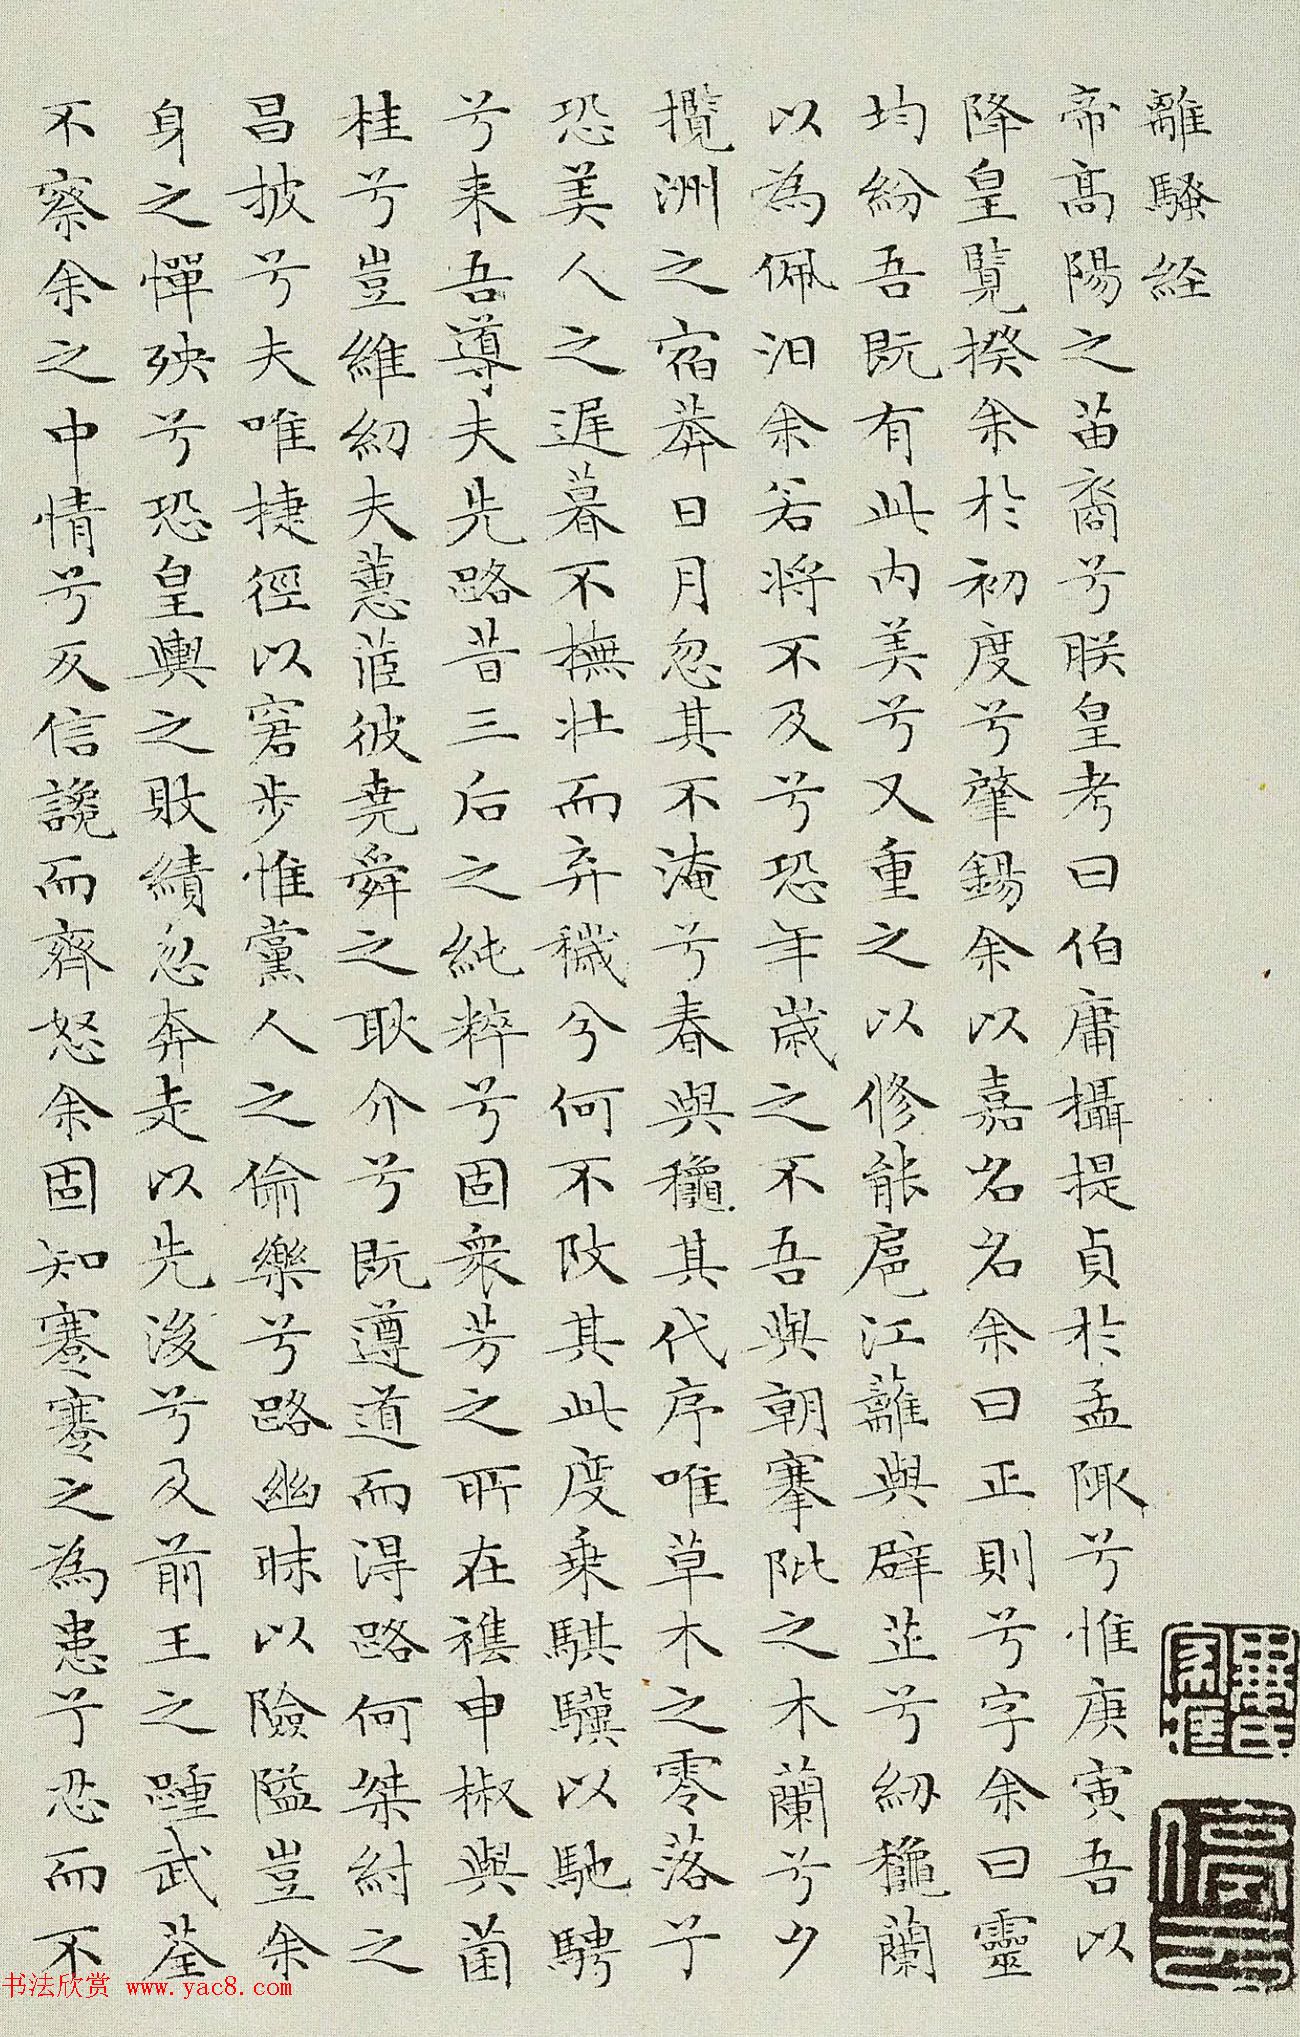 離騷經
帝高陽之苗裔兮朕皇考曰伯庸攝提貞於孟陬兮惟庚寅吾以
降皇覽揆余於初度兮肇錫余以嘉名名余曰正則兮字余曰靈
均紛吾既有此內美兮又重之以修能扈江蘺與辟芷兮紉穐蘭
以為佩汨余若將不及兮恐年歲之不吾與朝搴阰之木蘭兮夕
攬洲之宿莽日月忽其不淹兮春與龝其代序唯草木之零落兮
恐美人之遲暮不撫壯而弃穢兮何不改其此度乗騏驥以馳騁
兮来吾導夫先路昔三后之純粹兮固衆芳之所在襍申椒與菌
桂兮豈維紉夫蕙茝彼堯舜之耿介兮既遵道而得路何桀紂之
昌披兮夫唯捷徑以窘步惟黨人之偷樂兮路幽昧以險隘豈余
身之憚殃兮恐皇輿之敗績忽奔走以先後兮及前王之踵武荃
不察余之中情兮反信讒而齊怒余固知謇謇之為患兮忍而不
书法欣赏 www.yac8.com